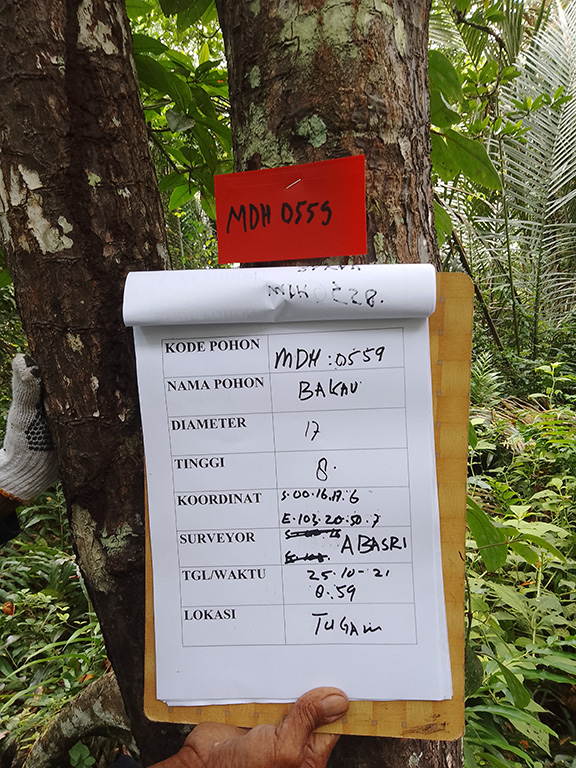 MDH 0559
KODE POHON MDH:0559
NAMA POHON BAKAU
DIAMETER 17
TINGGI 8.
KOORDINAT S.00.16.17.6
E.103.20.50.7
SURVEYOR ABASRI
TGL/WAKTU 25.10-21
0.59
LOKASI TUGAM